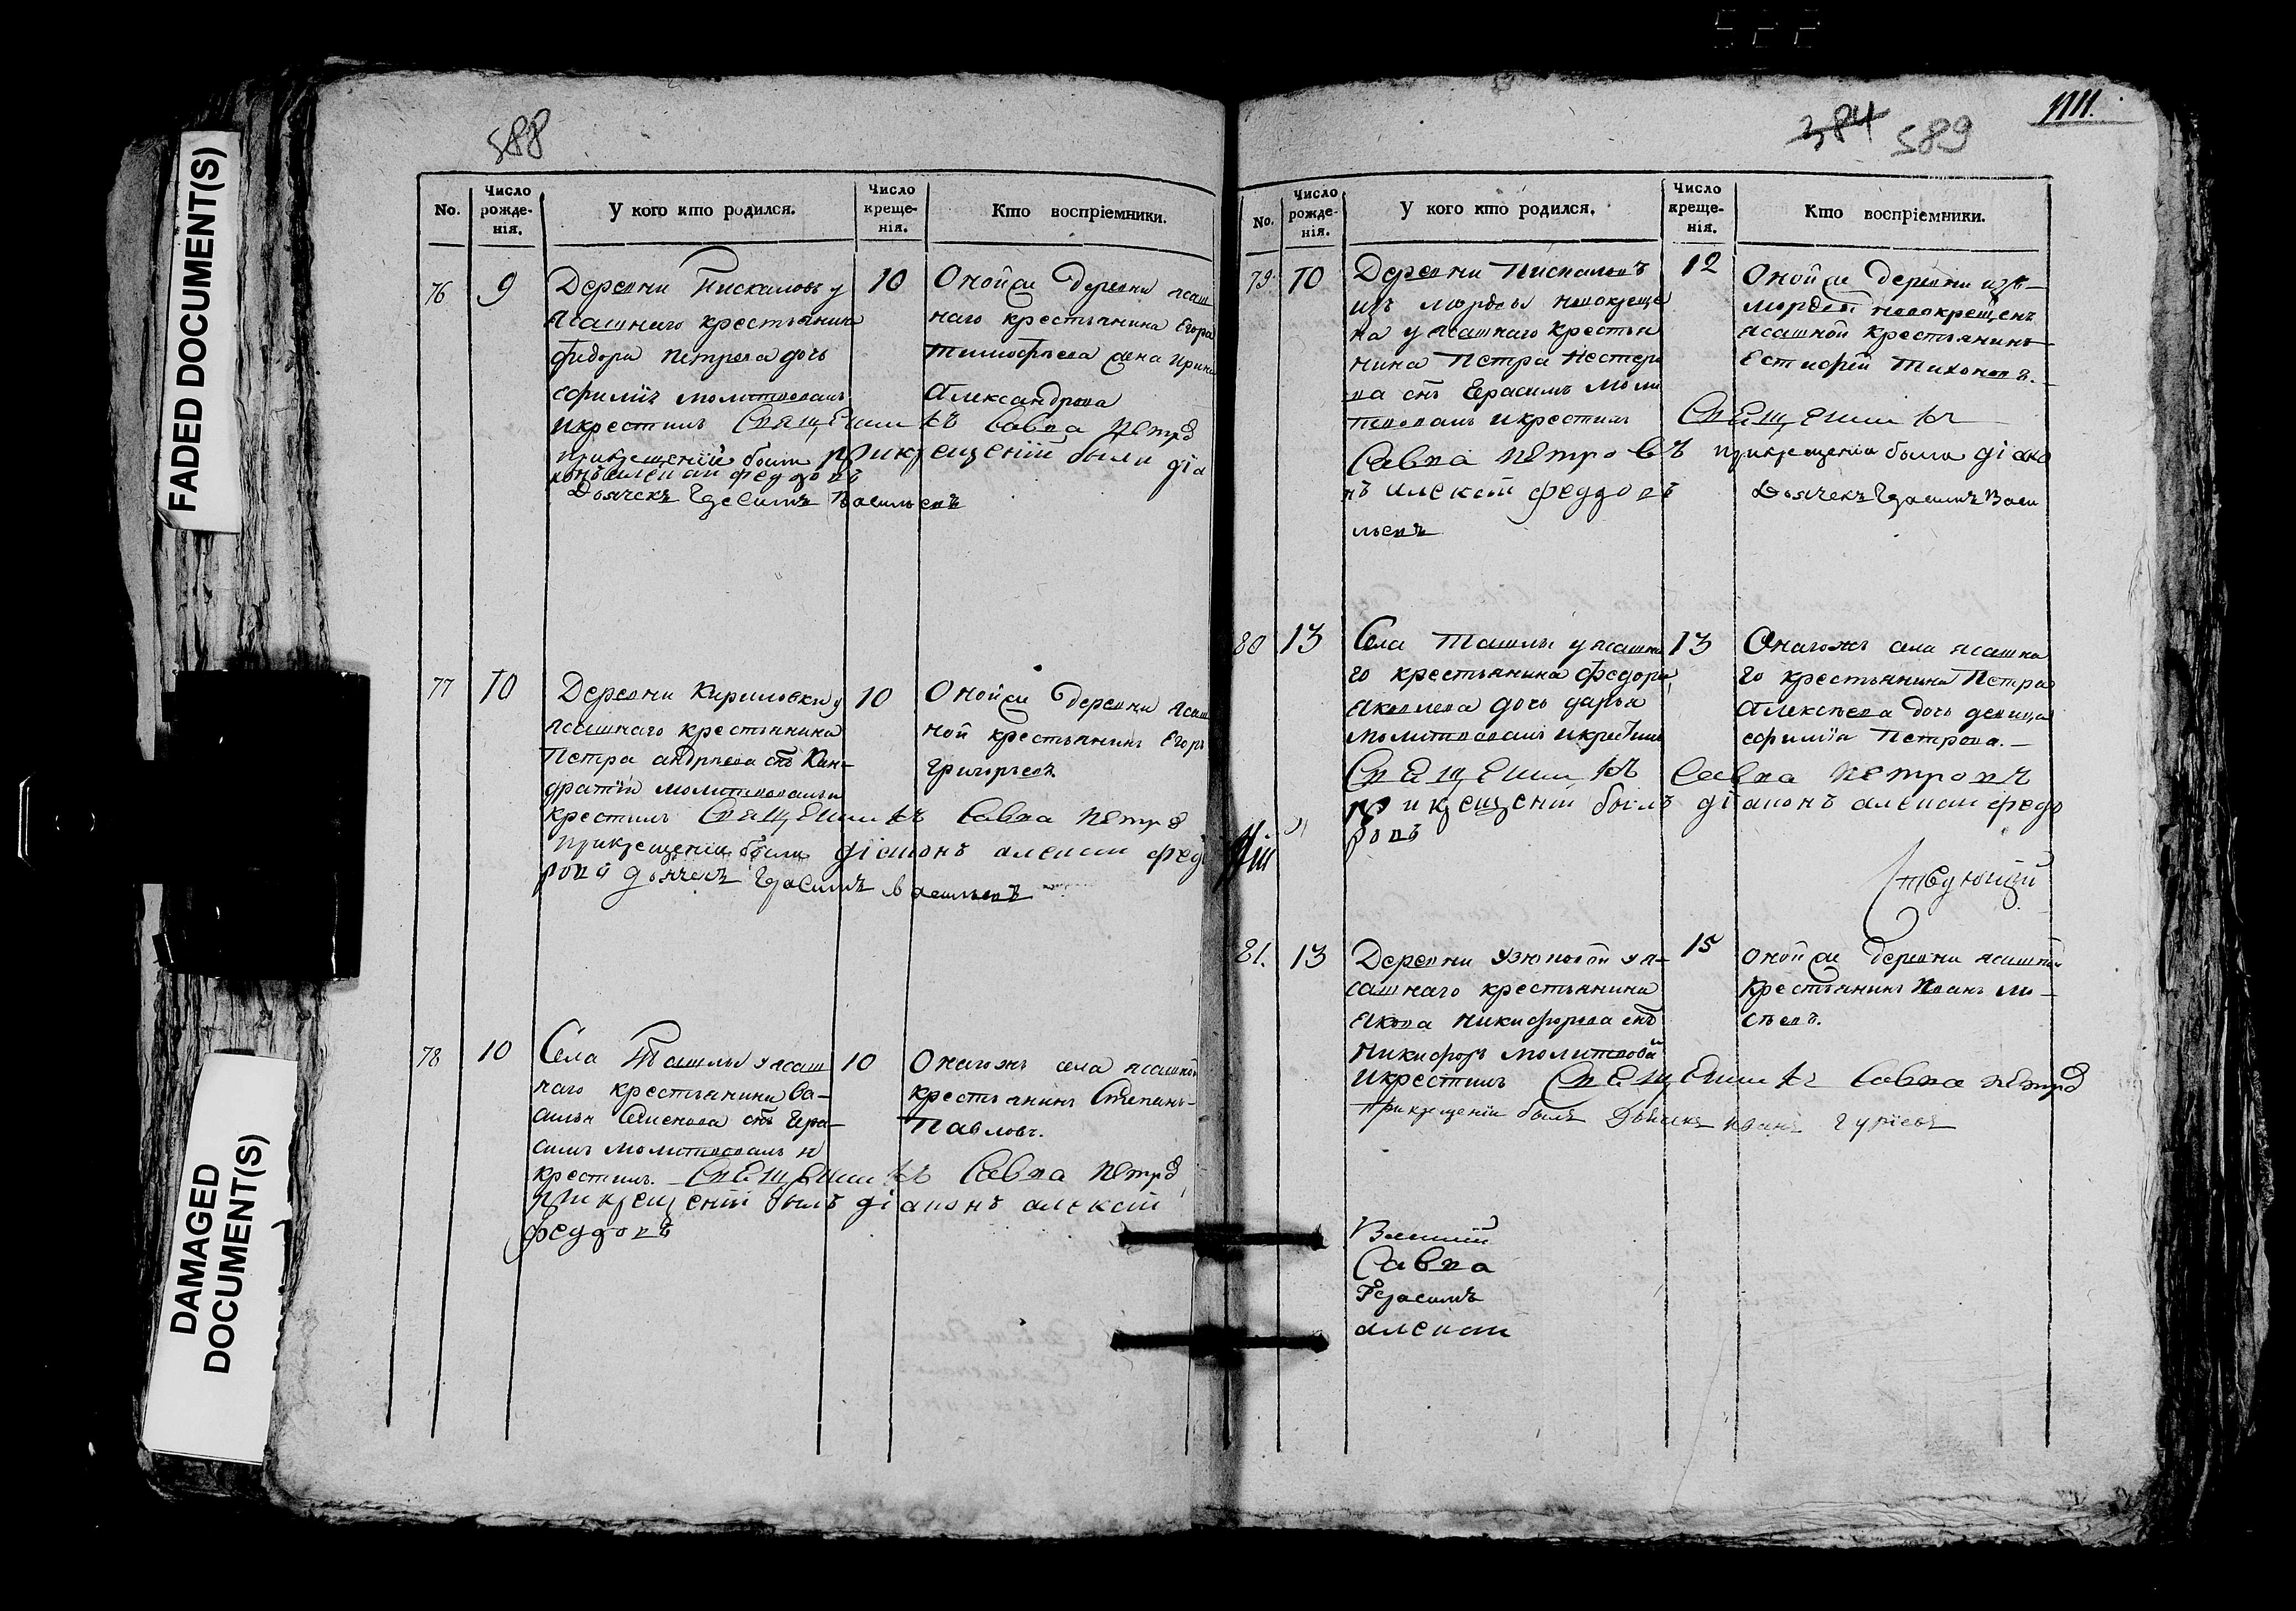 FADED DOCUMENT(S)
DAMAGED
DOCUMENT(S)
588
No.
Число
рожде-
нія.
У кого кто родился.
Число
креще-
нія.
Кто воспріемники.
76
9
Деревни Пискаловъ у
ясашнаго крестьянина
Федора Петрова дочь
Ефимія молитвовалъ
и крестилъ Священникъ Савва Петро
прикрещеніи были прикрещеніи были діа
конъ алексей феддовъ
Дьячекъ Герасимъ Васильевъ
10
Оной же деревни ясаш
наго крестьянина Егора
Тимофѣева жена Ирина
Александрова
77
10
Деревни Кириловки у
ясашнаго крестьянина
Петра андрѣева снъ Кан-
дратій молитвовалъ и
крестилъ Священникъ Савва Петро
прикрещеніи были діаконъ алексей федо
ровъ дьячекъ Герасимъ Васильевъ
10
Оной же деревни ясаш
ной крестьянинъ Егоръ
Григорьевъ
78
10
Села Ташлы у ясаш
наго крестьянина Ва-
силья Семенова снъ Гера-
симъ молитвовалъ и
крестилъ. Священникъ Савва Петро
прикрещеніи былъ діаконъ алексей
феддовъ
10
Онагожъ села ясашной
крестьянинъ Степанъ
Павловъ.
384
589
No.
Число
рожде-
нія.
У кого кто родился.
Число
креще-
нія.
Кто воспріемники.
79
10
Деревни Пискаловъ
изъ мордвы новокреще
на у ясашнаго крестья
нина Петра Нестеро
ва снъ Герасимъ моли
твовалъ и крестилъ Священникъ
Савва Петровъ прикрещеніи были діако
нъ алексей феддовъ Дьячекъ Герасимъ Васи
льевъ
12
Оной же деревни изъ
мордвы новокрещенъ
ясашной крестьянинъ
Естифей Тихоновъ.
80
13
Села Ташлы у ясашна
го крестьянина федора
Яковлева дочь дарья
молитвовалъ и крестилъ
Священникъ Савва Петровъ
прикрещеніи былъ діаконъ алексей федо
ровъ
13
Онагожъ села ясашна
го крестьянина Петра
Алексѣева дочь девица
ефимія Петрова.
ствующій
81.
13
Деревни Узюковой у я-
сашнаго крестьянина
Якова Никифорова снъ
Никифоръ молитвова
и крестилъ Священникъ Савва Петро
прикрещеніи былъ Дьячекъ Иванъ Гуріевъ
15
оной же деревни ясашной
крестьянинъ Иванъ Мо-
Савва
Герасимъ
алексей